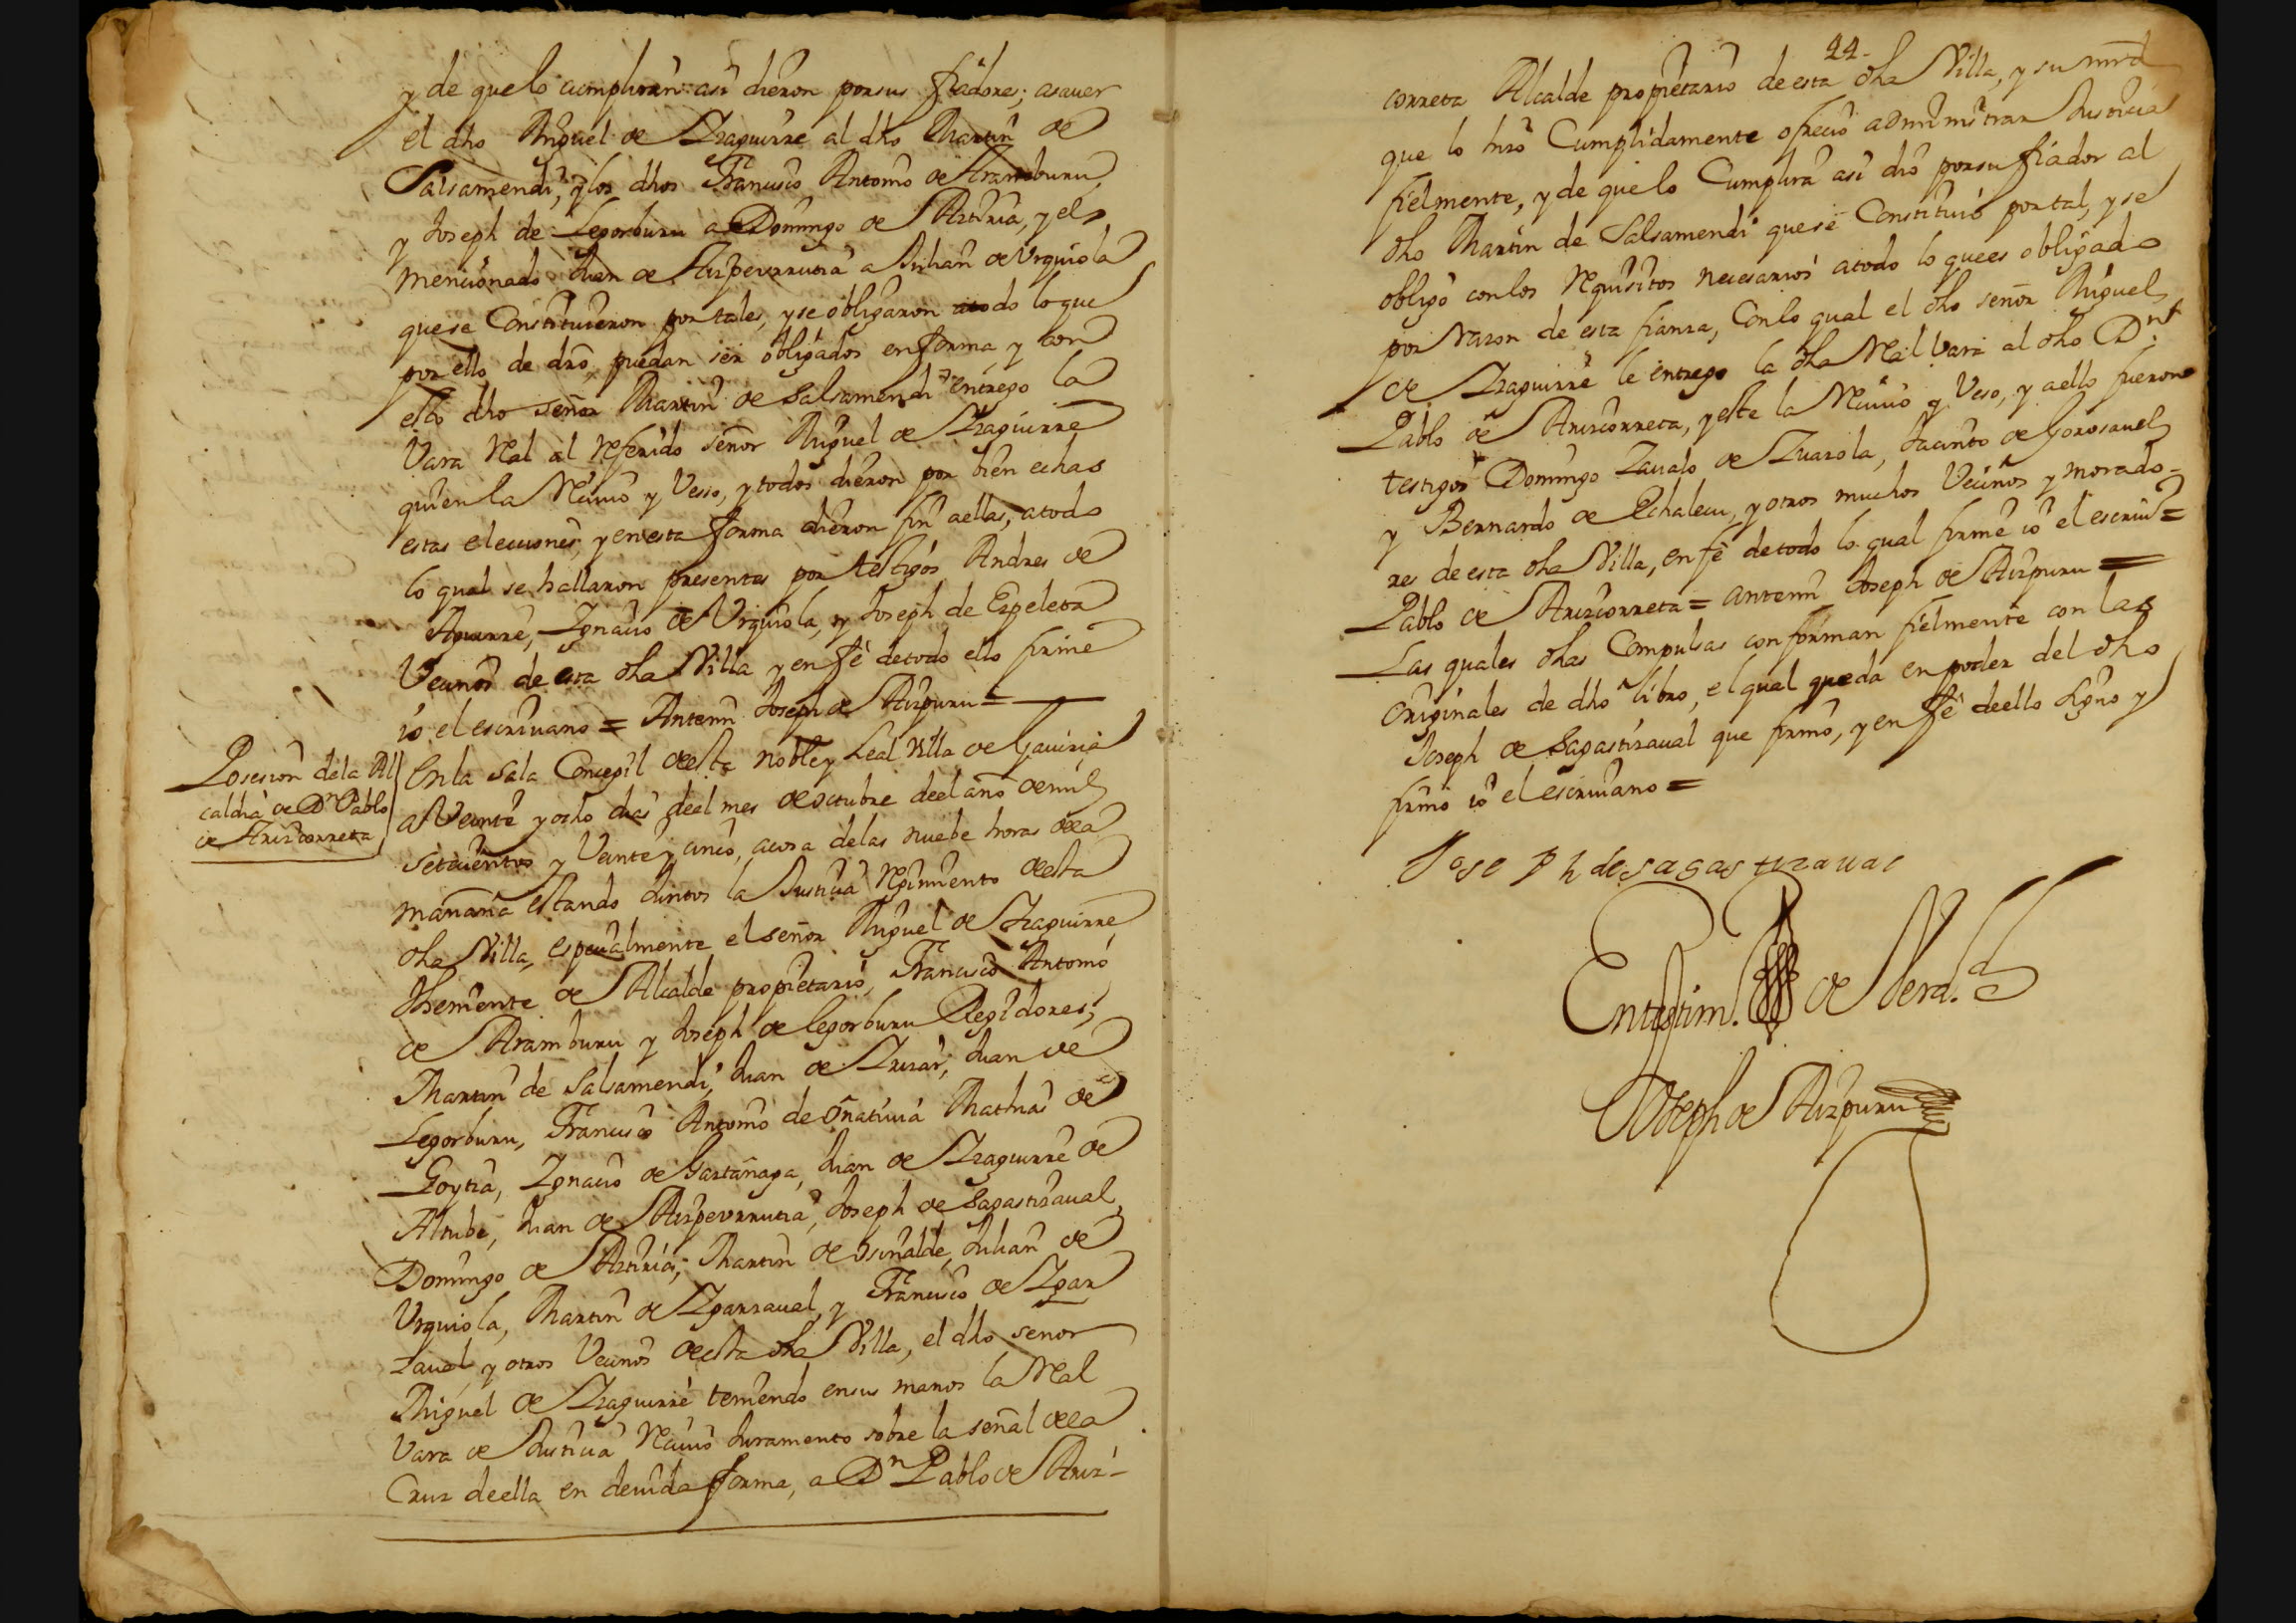 y de quelo cumpliran asi dieron porsus fiadores; asauer
el dho Miguel de Yzaguirre al dho Martin de
Salsamendi, y los dhos Francisco Antonio de Aramburu,
y Joseph de Legorburu a Domingo de Aztiria, y el
mencionado Juan de Aizpeurrutia a Julian de Vrquiola
quese Constituieron por tales, y se obligaron atodo loque
por ello de dro, puedan ser obligados enforma y con
esto dho señor Martin de Salsamendi entrego la
Vara Real al Referido señor Miguel de Yzaguirre
quien la Reciuio y Vesso, y todos dieron por bien echas
estas elecciones, y enesta forma dieron fin aellas, atodo
lo qual se hallaron presentes por testigos Andres de
Aguirre, Ygnacio de Vrquiola, y Joseph de Ezpeleta
Vecinos de esta dha Villa y en fe detodo ello firme
io el escriuano = Antemi Joseph de Aizpuru =
Posesion dela Al
caldia de Dn Pablo
de Arizcorreta
Enla sala Concegil deesta noble y Leal Villa de Gauiria
a Veinte y ocho dias deel mes de octubre deel año de mil
setecientos y Veinte y cinco, acosa delas nuebe horas dela
mañana estando Juntos la Justicia Regimiento deesta
dha Villa, especialmente el señor Miguel de Yzaguirre
Theniente de Alcalde propietario, Francisco Antonio
de Aramburu y Joseph de Legorburu Regidores;
Martin de Salsamendi, Juan de Yrizar, Juan de
Legorburu, Francisco Antonio de Oñatiuia Mathias de
Goytia, Ygnacio de Gartañaga, Juan de Yzaguirre de
Altube, Juan de Aizpeurrutia, Joseph de Sagastizaual,
Domingo de Aztiria, Martin de Osinalde, Julian de
Vrquiola, Martin de Ygarzaual, y Francisco de Ygar
zaual y otros Vecinos deesta dha Villa, el dho señor
Miguel de Yzaguirre teniendo ensus manos la Real
Vara de Justicia Reciuio Juramento sobre la señal dela
Cruz deella en deuida forma, a Dn Pablo de Ariz-
44-
correta Alcalde propietario de esta dha Villa, y su mrd
que lo hizo Cumplidamente ofrecio administrar Justicia
fielmente, y de que lo Cumplira asi dio porsu fiador al
dho Martin de Salsamendi quese Constituio por tal, y se
obligo conlos Requisitos necesarios atodo lo quees obligado
por razon de esta fianza, Conlo qual el dho señor Miguel
de Yzaguirre le entrego la dha Real Vara al dho Dn
Pablo de Arizcorreta, y este la Reciuio y Veso, y aello fueron
testigos Domingo Zaualo de Zuazola, Jacinto de Gorosauel
y Bernardo de Echalecu, y otros muchos Vecinos y morado-
res de esta dha Villa, en fe detodo lo qual firme io el escriu =
Pablo de Arizcorreta = antemi Joseph de Aizpuru =
Las quales dhas Compulsas conforman fielmente con las
originales de dho libro, el qual queda en poder del dho
Joseph de Sagastizaual que firmo, y en fe deello signo y
firmo io el escriuano =
Joseph de sagastizaual
En testim. de Verd.
Joseph de Aizpuru